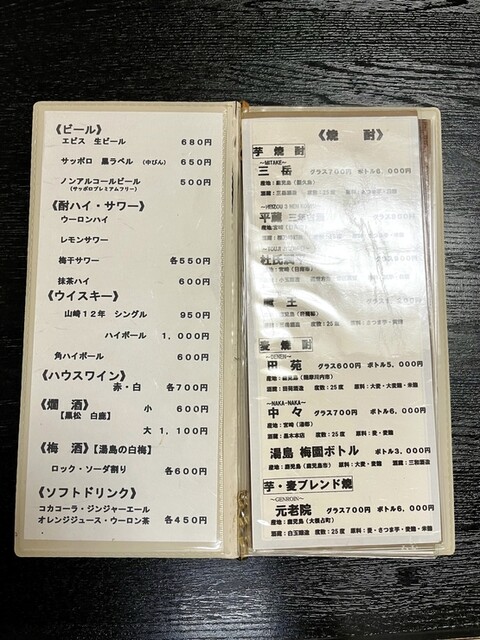 《ビール》
エビス 生ビール 680円
サッポロ 黒ラベル (中びん) 650円
ノンアルコールビール 500円
(サッポロプレミアムフリー)
《酎ハイ・サワー》
ウーロンハイ
レモンサワー
梅干サワー 各550円
抹茶ハイ 600円
《ウイスキー》
山崎12年 シングル 950円
ハイボール 1,000円
角ハイボール 600円
《ハウスワイン》
赤・白 各700円
《燗 酒》 小 600円
【黒松 白鹿】
大 1,100円
《梅 酒》【湯島の白梅】
ロック・ソーダ割り 各600円
《ソフトドリンク》
コカコーラ・ジンジャーエール
オレンジジュース・ウーロン茶 各450円
《焼 酎》
芋 焼 酎
~MITAKE~
三岳 グラス700円 ボトル6,000円
産地:鹿児島(屋久島)
平蔵
産地:宮崎
杜氏
産地:宮崎(日南市)
王
麦 焼 酎
~DENEN~
田 苑 グラス600円 ボトル5,000円
産地:鹿児島(薩摩川内市)
酒蔵:田苑酒造 度数:25度 原料:大麦・大麦麹・米麹
~NAKA-NAKA~
中々 グラス700円 ボトル6,000円
産地:宮崎
酒蔵:黒木本店 度数:25度 原料:麦・麦麹
湯島 梅園ボトル ボトル3,000円
産地:鹿児島(鹿児島市) 原料:大麦・麦麹
芋・麦ブレンド焼
~GENROIN~
元老院 グラス700円 ボトル6,000円
産地:鹿児島(大根占町)
酒蔵:白玉醸造 度数:25度 原料:麦・さつま芋・麦麹・米麹